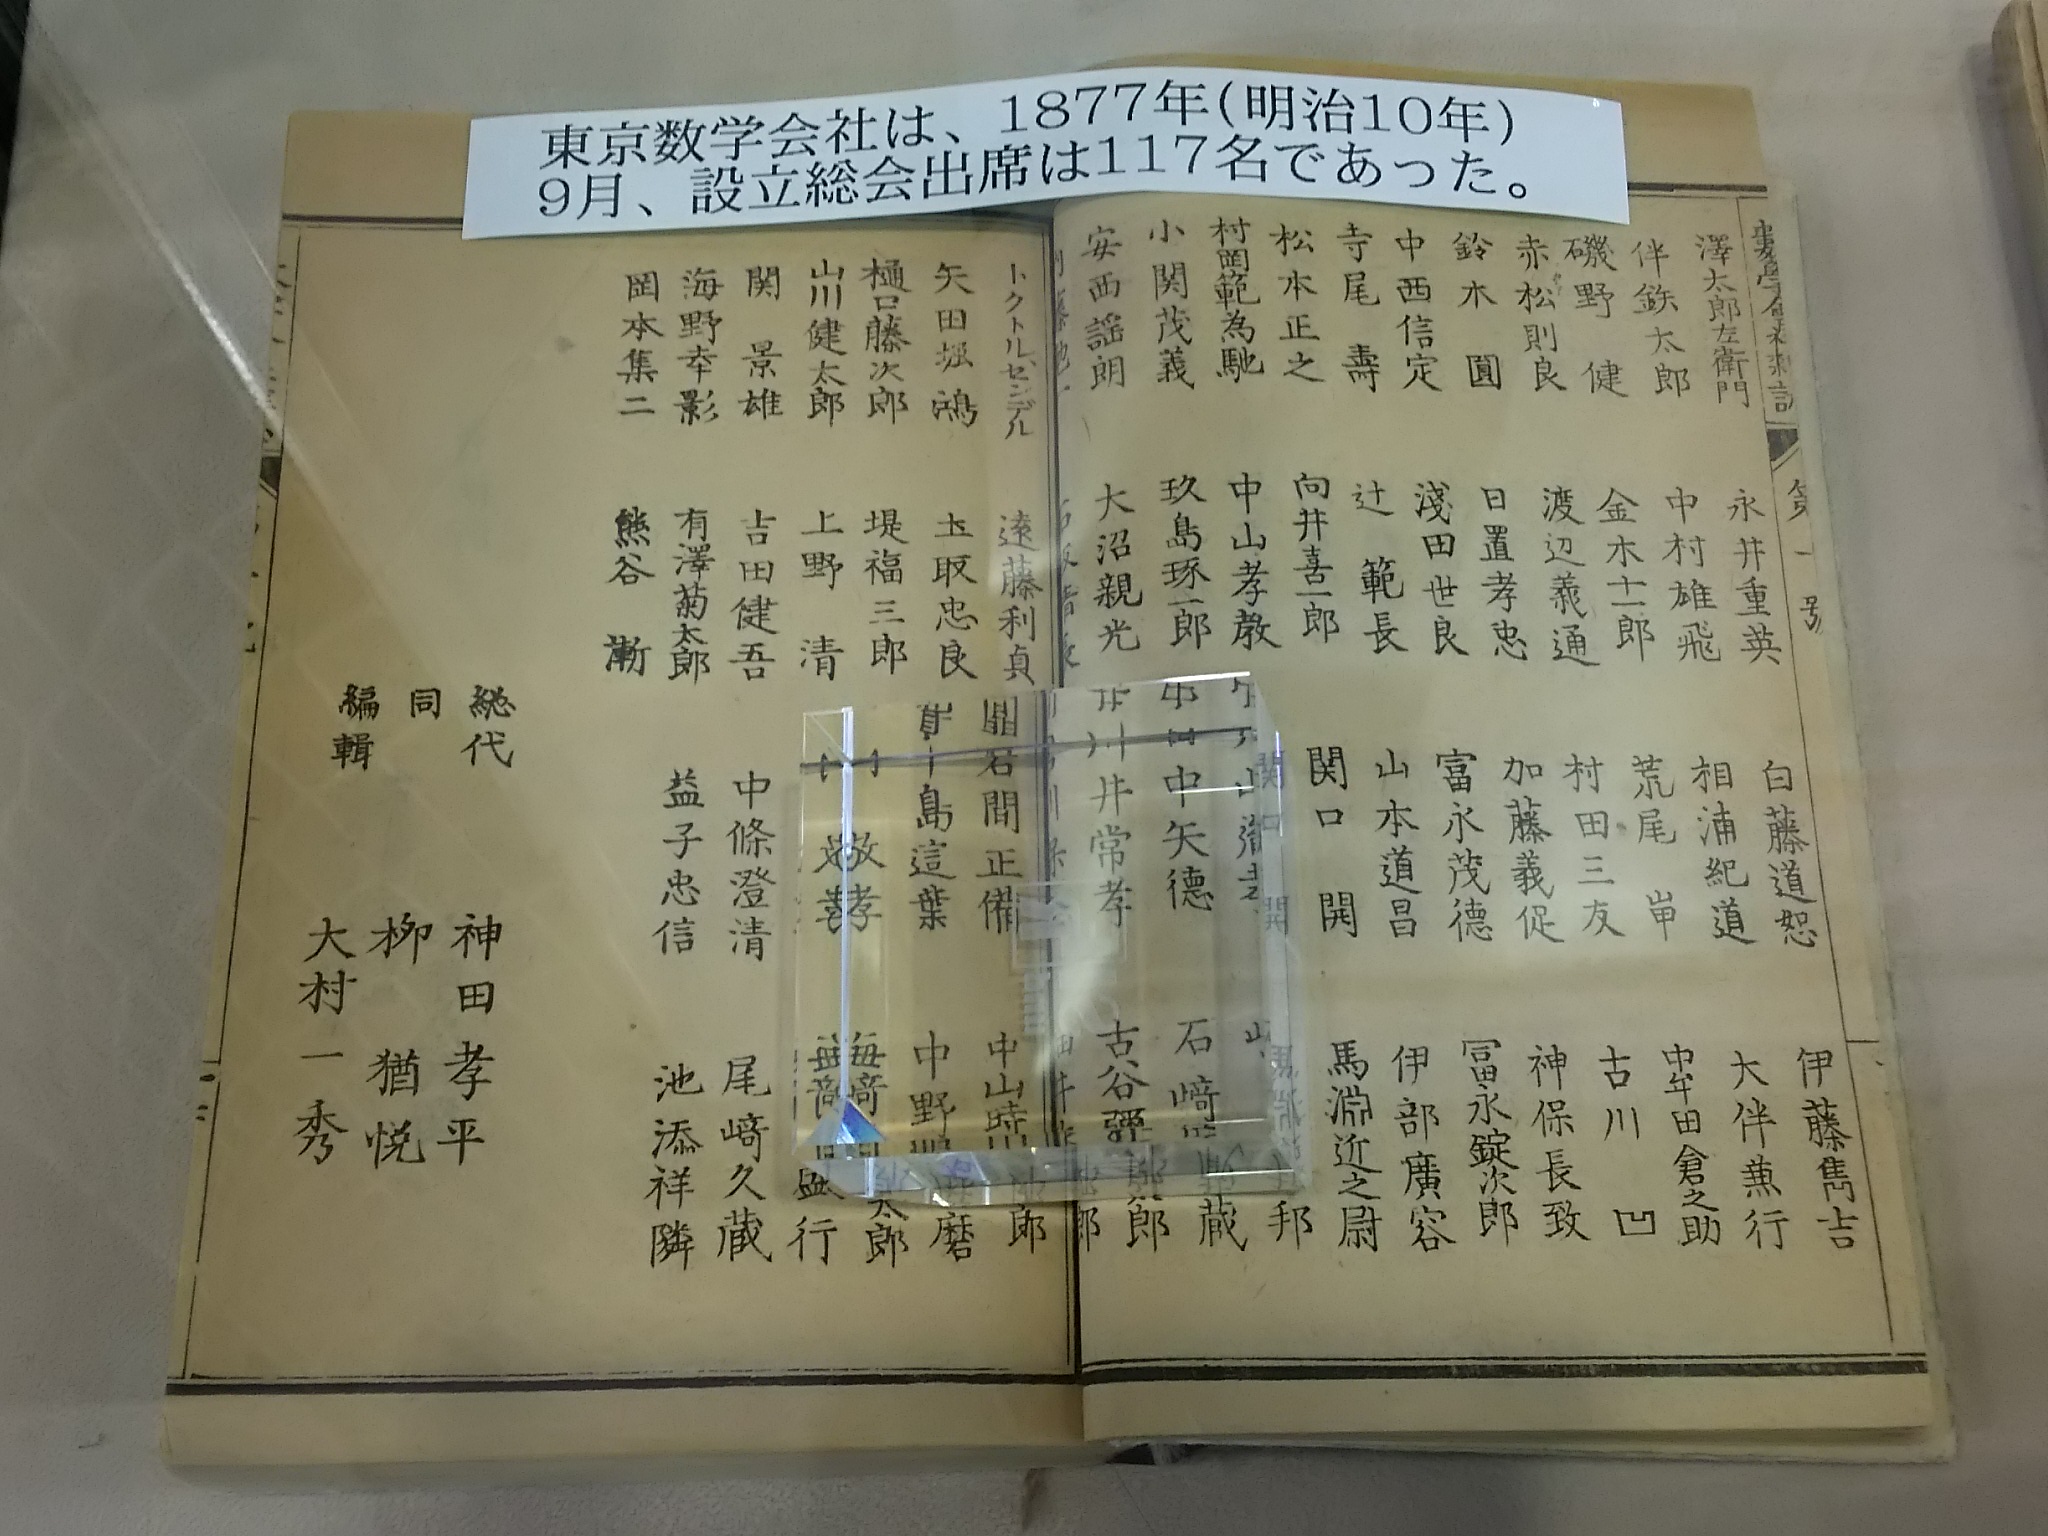 東京数学会社は、1877年(明治10年)
9月、設立総会出席は117名であった。
第一號
澤太郎左衛門
永井重英
白藤道恕
伊藤雋吉
伴鉄太郎
中村雄飛
相浦紀道
大伴兼行
磯野健
金木十一郎
荒尾岬
中牟田倉之助
赤松則良
渡辺義通
村田三友
古川凹
鈴木圓
日置孝忠
加藤義促
神保長致
中西信定
淺田世良
富永茂德
冨永錠次郎
寺尾壽
辻範長
山本道昌
伊部廣容
松本正之
向井喜一郎
関口開
馬淵近之尉
村岡範為馳
中山孝敎
邦
小関茂義
玖島琢一郎
中矢德
石﨑
蔵
安西謡朗
大沼親光
川井常孝
古谷彌
郎
ドクトル、センデル
遠藤利貞
岩間正備
中山時
郎
矢田堀鴻
玉取忠良
島這葉
中野
磨
樋口藤次郎
堤福三郎
太郎
山川健太郎
上野清
行
関景雄
吉田健吾
中條澄清
尾﨑久蔵
海野幸影
有澤菊太郎
益子忠信
池添祥隣
岡本集二
熊谷漸
総代
神田孝平
同
柳楢悦
編輯
大村一秀